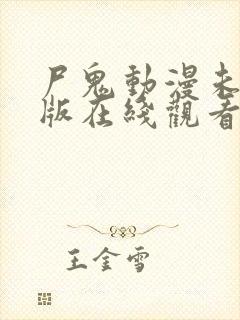 尸鬼動漫未
版在綫觀看
王金雪